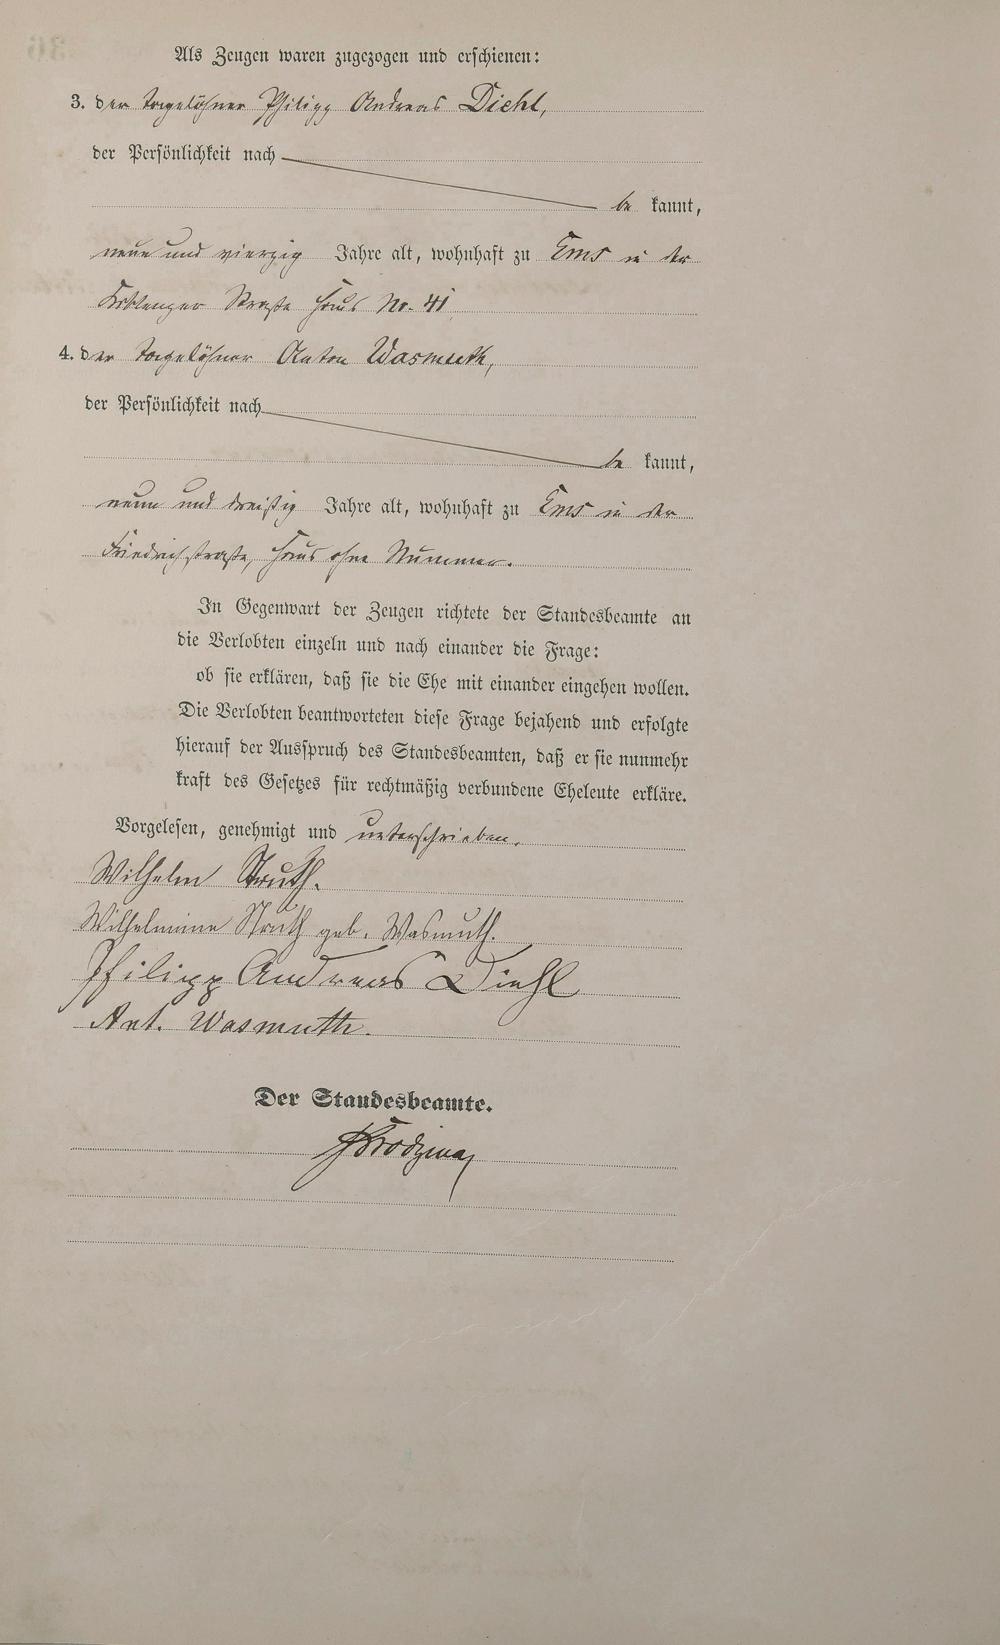 Als Zeugen waren zugezogen und erschienen:
3. der Tagelöhner Philipp Andreas Diehl,
der Persönlichkeit nach
be kannt,
neun und vierzig Jahre alt, wohnhaft zu Ems in der
Koblenzer Straße Haus No. 41
4. der Tagelöhner Anton Wasmuth,
der Persönlichkeit nach
be kannt,
neun und dreißig Jahre alt, wohnhaft zu Ems in der
Friedrichstraße, Haus ohne Nummer.
In Gegenwart der Zeugen richtete der Standesbeamte an
die Verlobten einzeln und nach einander die Frage:
ob sie erklären, daß sie die Ehe mit einander eingehen wollen.
Die Verlobten beantworteten diese Frage bejahend und erfolgte
hierauf der Ausspruch des Standesbeamten, daß er sie nunmehr
kraft des Gesetzes für rechtmäßig verbundene Eheleute erkläre.
Vorgelesen, genehmigt und unterschrieben.
Wilhelm Struth.
Wilhelmine Struth geb. Wasmuth.
Philipp Andreas Diehl
Ant. Wasmuth.
Der Standesbeamte.